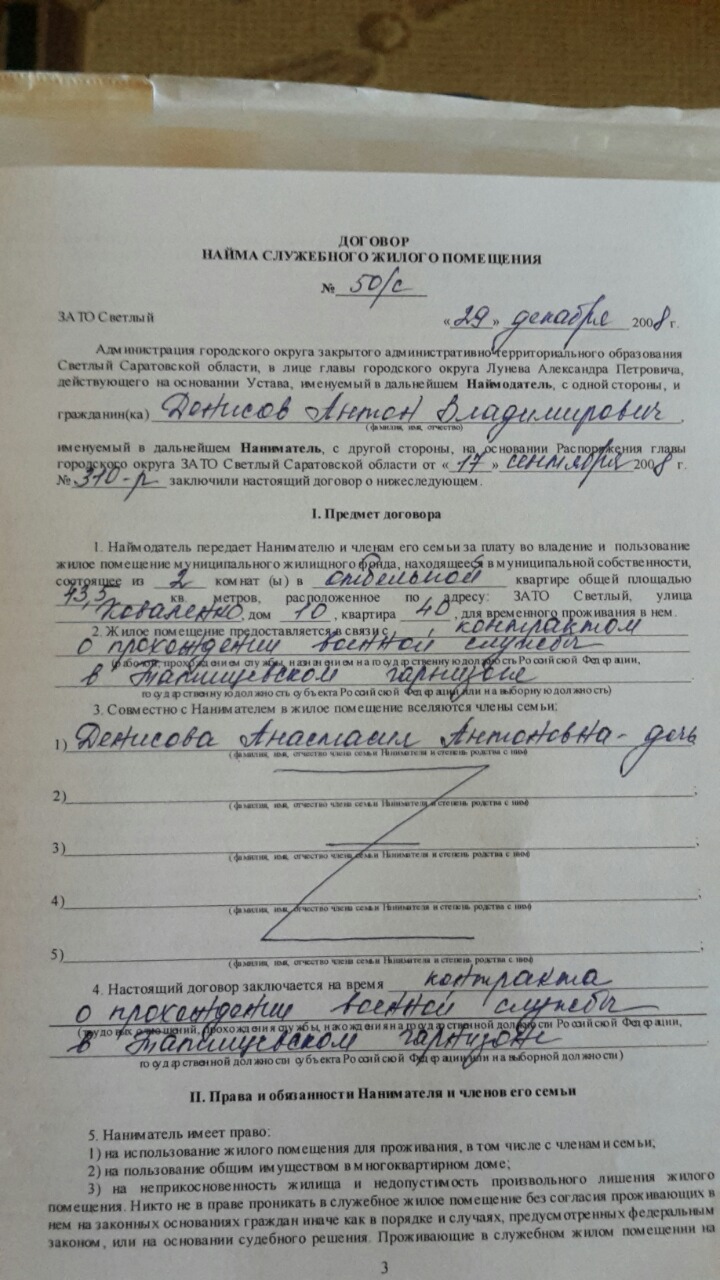 ДОГОВОР
НАЙМА СЛУЖЕБНОГО ЖИЛОГО ПОМЕЩЕНИЯ
№ 50/с
ЗАТО Светлый «29» декабря 2008 г.
Администрация городского округа закрытого административно-территориального образования
Светлый Саратовской области, в лице главы городского округа Лунева Александра Петровича,
действующего на основании Устава, именуемый в дальнейшем Наймодатель, с одной стороны, и
гражданин(ка) Денисов Антон Владимирович,
(фамилия, имя, отчество)
именуемый в дальнейшем Наниматель, с другой стороны, на основании Распоряжения главы
городского округа ЗАТО Светлый Саратовской области от «17» сентября 2008 г.
№ 310-р заключили настоящий договор о нижеследующем.
I. Предмет договора
1. Наймодатель передает Нанимателю и членам его семьи за плату во владение и пользование
жилое помещение муниципального жилищного фонда, находящееся в муниципальной собственности,
состоящее из 2 комнат (ы) в отдельной квартире общей площадью
43,5 кв. метров, расположенное по адресу: ЗАТО Светлый, улица
Коваленко, дом 10, квартира 40, для временного проживания в нем.
2. Жилое помещение предоставляется в связи с контрактом
о прохождении военной службы
(работой, прохождением службы, назначением на государственную должность Российской Федерации,
в Татищевском гарнизоне
государственную должность субъекта Российской Федерации или на выборную должность)
3. Совместно с Нанимателем в жилое помещение вселяются члены семьи:
1) Денисова Анастасия Антоновна - дочь
(фамилия, имя, отчество члена семьи Нанимателя и степень родства с ним)
2) ;
(фамилия, имя, отчество члена семьи Нанимателя и степень родства с ним)
3) ;
(фамилия, имя, отчество члена семьи Нанимателя и степень родства с ним)
4) ;
(фамилия, имя, отчество члена семьи Нанимателя и степень родства с ним)
5) .
(фамилия, имя, отчество члена семьи Нанимателя и степень родства с ним)
4. Настоящий договор заключается на время контракта
о прохождении военной службы
(трудовых отношений, прохождения службы, нахождения на государственной должности Российской Федерации,
в Татищевском гарнизоне
государственной должности субъекта Российской Федерации или на выборной должности)
II. Права и обязанности Нанимателя и членов его семьи
5. Наниматель имеет право:
1) на использование жилого помещения для проживания, в том числе с членами семьи;
2) на пользование общим имуществом в многоквартирном доме;
3) на неприкосновенность жилища и недопустимость произвольного лишения жилого
помещения. Никто не в праве проникать в служебное жилое помещение без согласия проживающих в
нем на законных основаниях граждан иначе как в порядке и случаях, предусмотренных федеральным
законом, или на основании судебного решения. Проживающие в служебном жилом помещении на
3